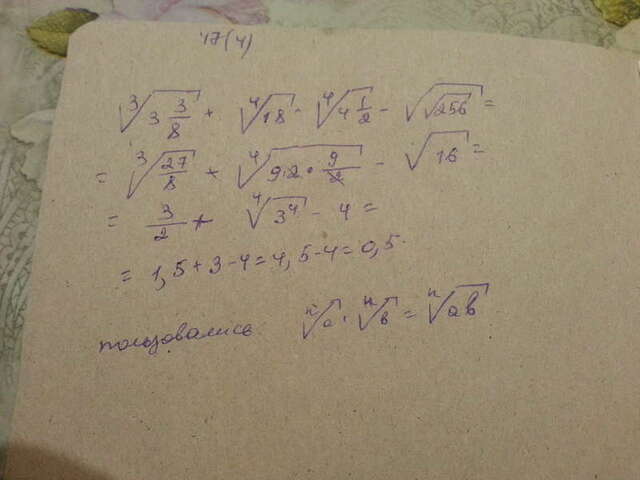 17(4)
∛(3 3/8) + ∜18 · ∜(4 1/2) - √√256 =
= ∛(27/8) + ∜(9·2·9/2) - √16 =
= 3/2 + ∜(3⁴) - 4 =
= 1,5 + 3 - 4 = 4,5 - 4 = 0,5.
пользовались ⁿ√a · ⁿ√b = ⁿ√ab